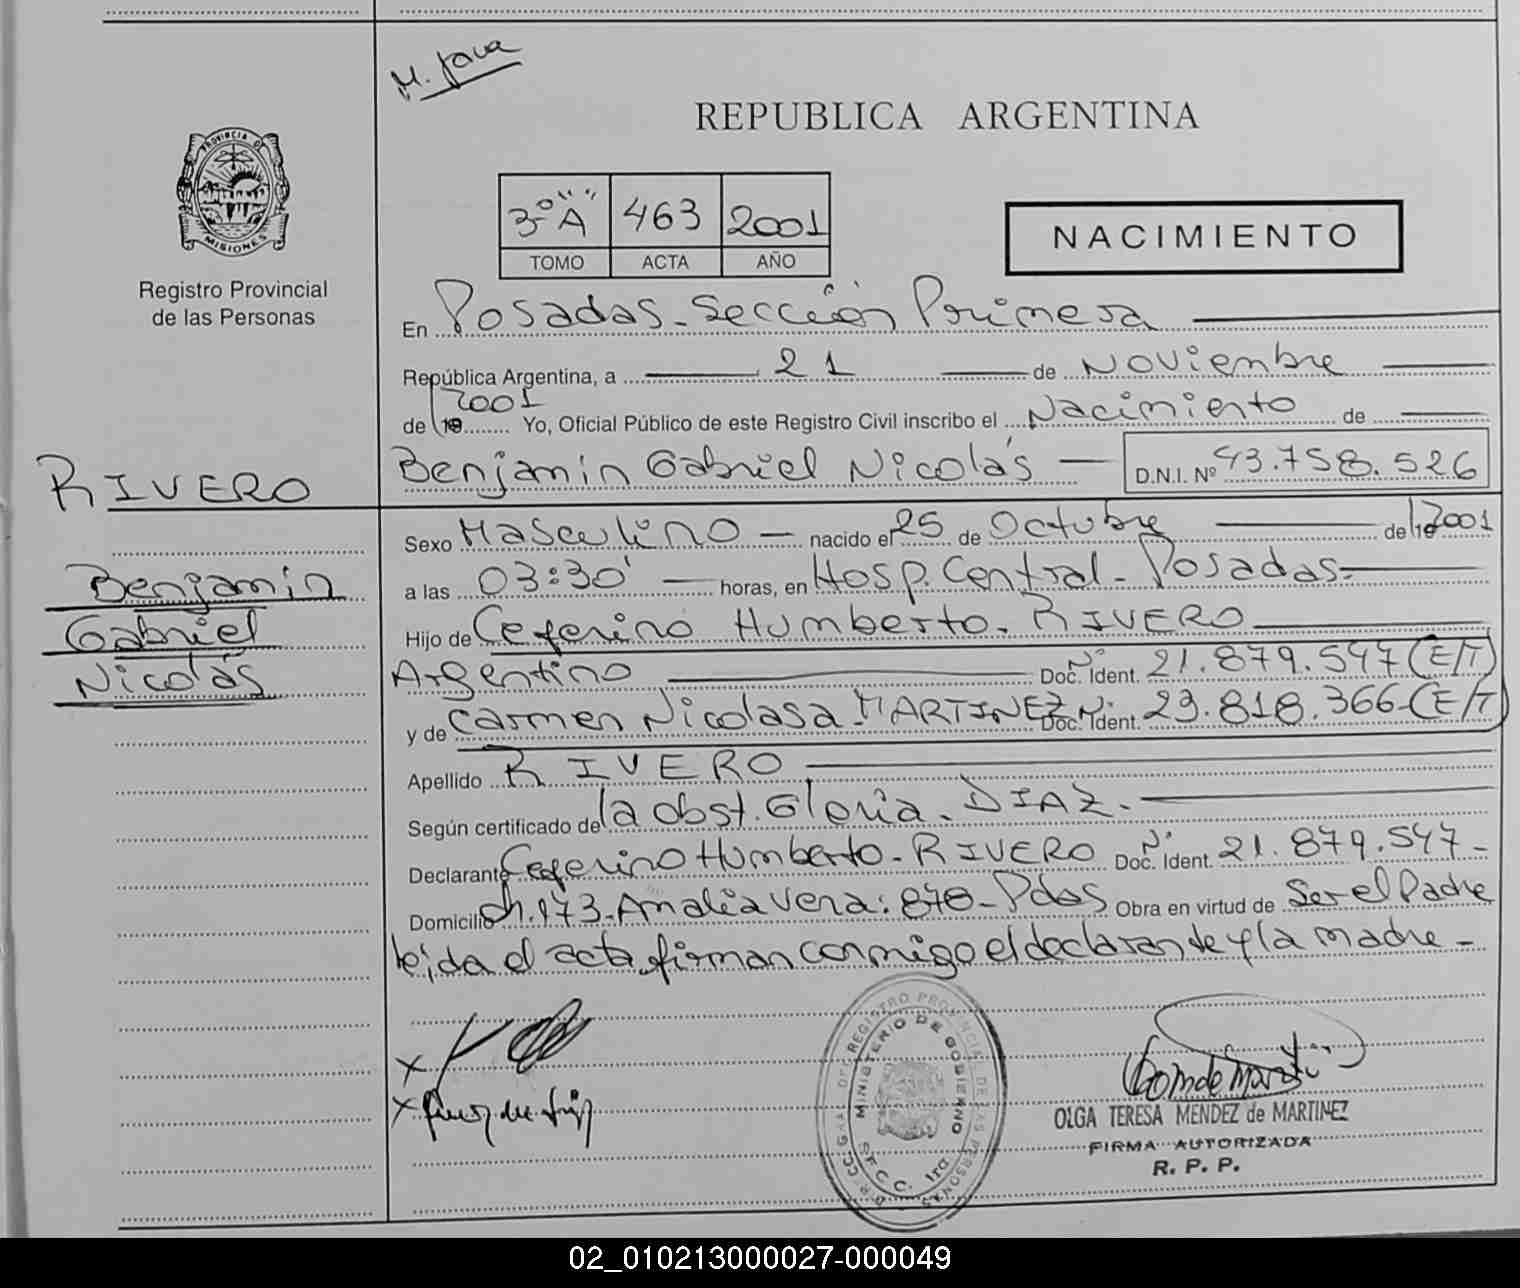 M. Java
REPUBLICA ARGENTINA
PROVINCIA DE
MISIONES
Registro Provincial
de las Personas
3º "A" 463 2001
TOMO ACTA AÑO
NACIMIENTO
En Posadas - Sección Primera
República Argentina, a 21 de Noviembre
de 19 2001 Yo, Oficial Público de este Registro Civil inscribo el Nacimiento de
Benjamin Gabriel Nicolás — D.N.I. Nº 43.758.526
RIVERO
Benjamin
Gabriel
Nicolás
Sexo Masculino — nacido el 25 de Octubre de 19 2001
a las 03:30' horas, en Hosp. Central - Posadas.
Hijo de Ceferino Humberto. RIVERO
Argentino Doc. Nº Ident. 21.879.547 (E/T)
y de Carmen Nicolasa MARTINEZ Doc. Nº Ident. 23.818.366 (E/T)
Apellido RIVERO
Según certificado de la obst. Gloria. DIAZ.
Declarante Ceferino Humberto - RIVERO Doc. Nº Ident. 21.879.547-
Domicilio ch. 173 - Analia Vera: 878 - Pdas Obra en virtud de Ser el Padre
leida el acta firman conmigo el declarante y la madre -
REGISTRO PROVINCIAL DE LAS PERSONAS
MINISTERIO DE GOBIERNO
SECC. 1ra.
OLGA TERESA MENDEZ de MARTINEZ
FIRMA AUTORIZADA
R. P. P.
02_010213000027-000049